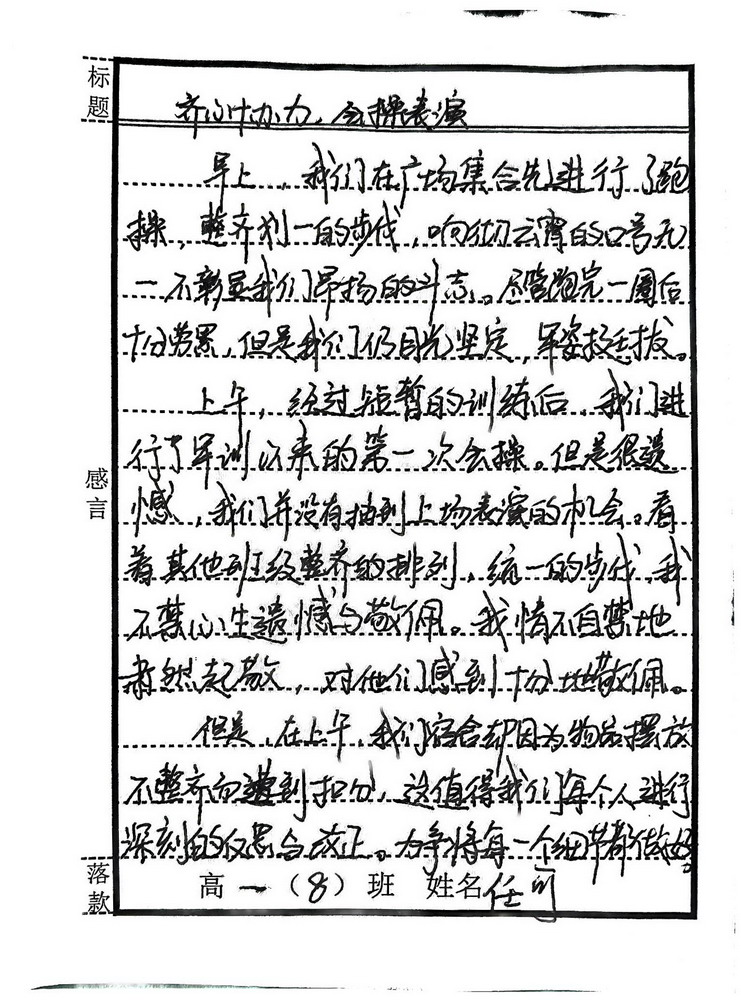 标题
齐心协力,会操表演
早上,我们在广场集合先进行了跑
操,整齐划一的步伐,响彻云霄的口号无
一不彰显我们昂扬的斗志。尽管跑完一圈后
十分劳累,但是我们仍目光坚定,军姿挺拔。
上午,经过短暂的训练后,我们进
行了军训以来的第一次会操。但是很遗
憾,我们并没有抽到上场表演的机会。看
着其他班级整齐的排列,统一的步伐,我
不禁心生遗憾与敬佩。我情不自禁地
肃然起敬,对他们感到十分地敬佩。
但是,在上午,我们宿舍却因为物品摆放
不整齐而遭到扣分,这值得我们每个人进行
深刻的反思与改正。力争将每一个细节都做好。
感言
落款
高一(8)班 姓名任可